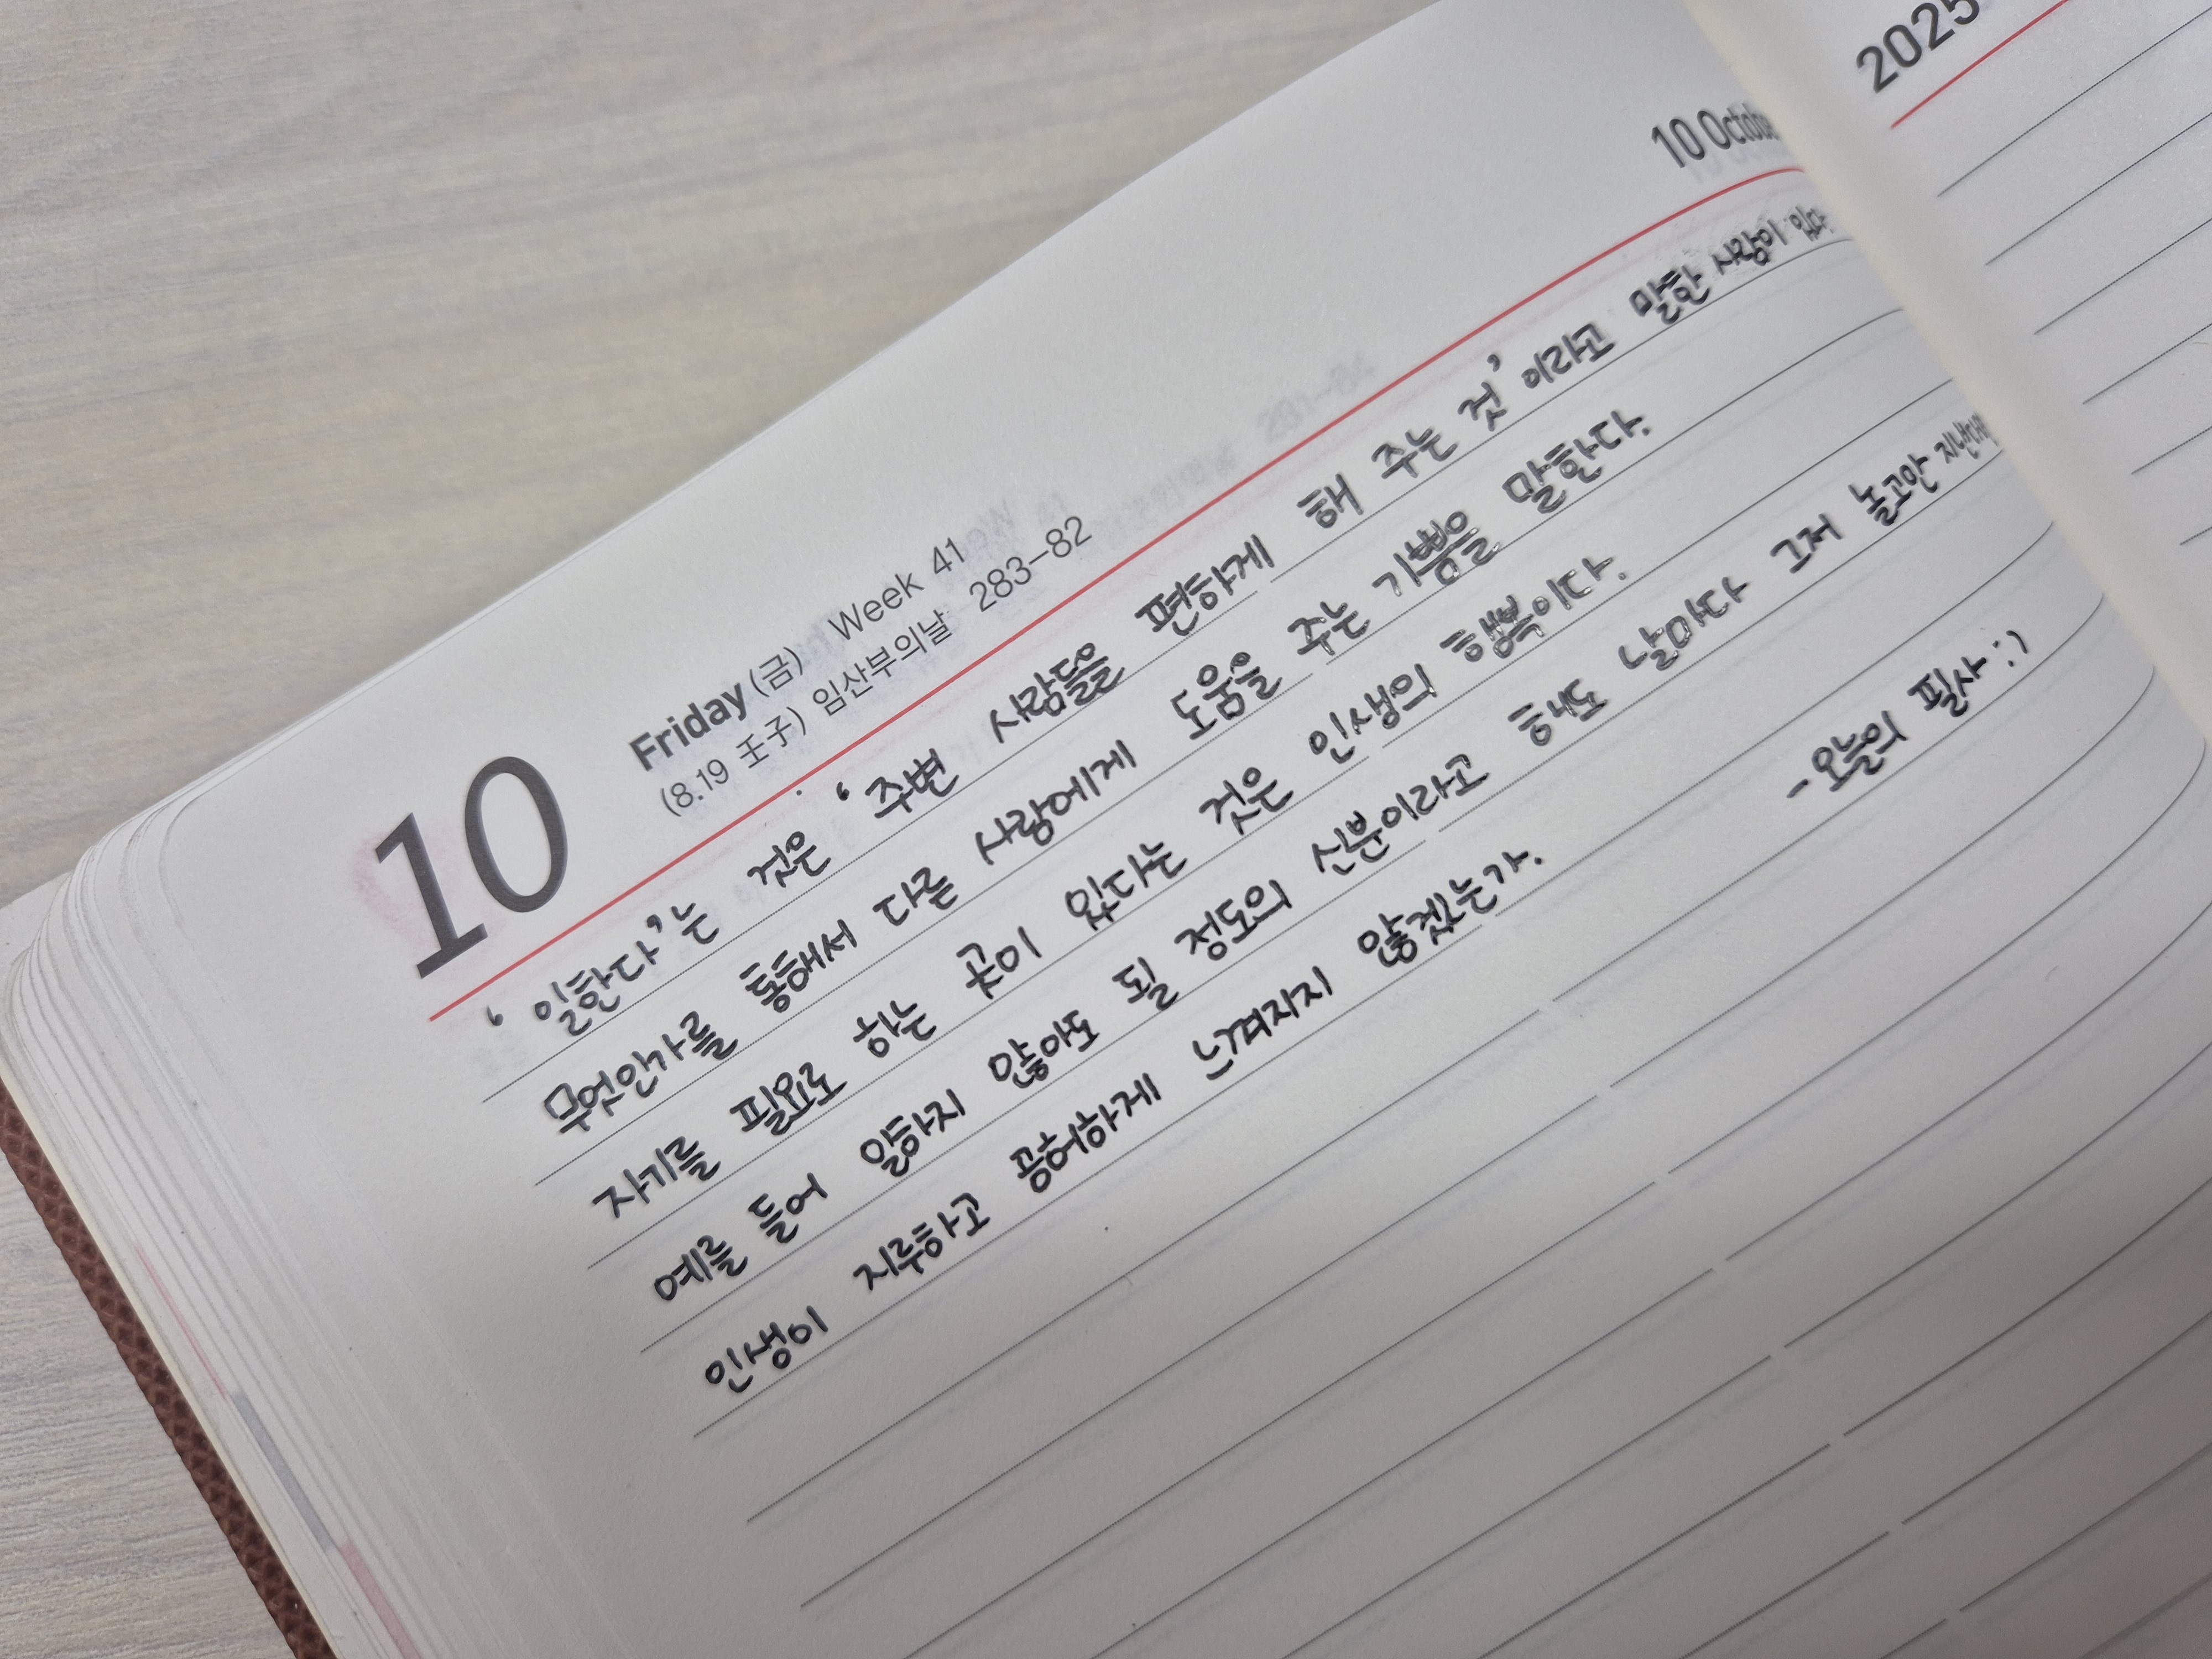 2025
10 October
10
Friday (금) Week 41
(8.19 壬子) 임산부의날 283-82
‘일한다’는 것은 ‘주변 사람들을 편하게 해 주는 것’이라고 말한 사람이 있다.
무엇인가를 통해서 다른 사람에게 도움을 주는 기쁨을 말한다.
자기를 필요로 하는 곳이 있다는 것은 인생의 행복이다.
예를 들어 일하지 않아도 될 정도의 신분이라고 해도 날마다 그저 놀고만
인생이 지루하고 공허하게 느껴지지 않겠는가.
- 오늘의 필사 :)